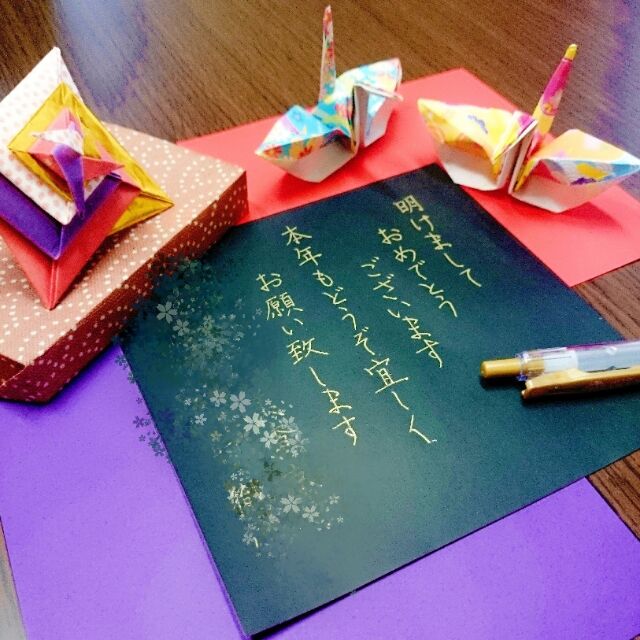 明けまして
おめでとう
ございます
本年もどうぞ宜しく
お願い致します